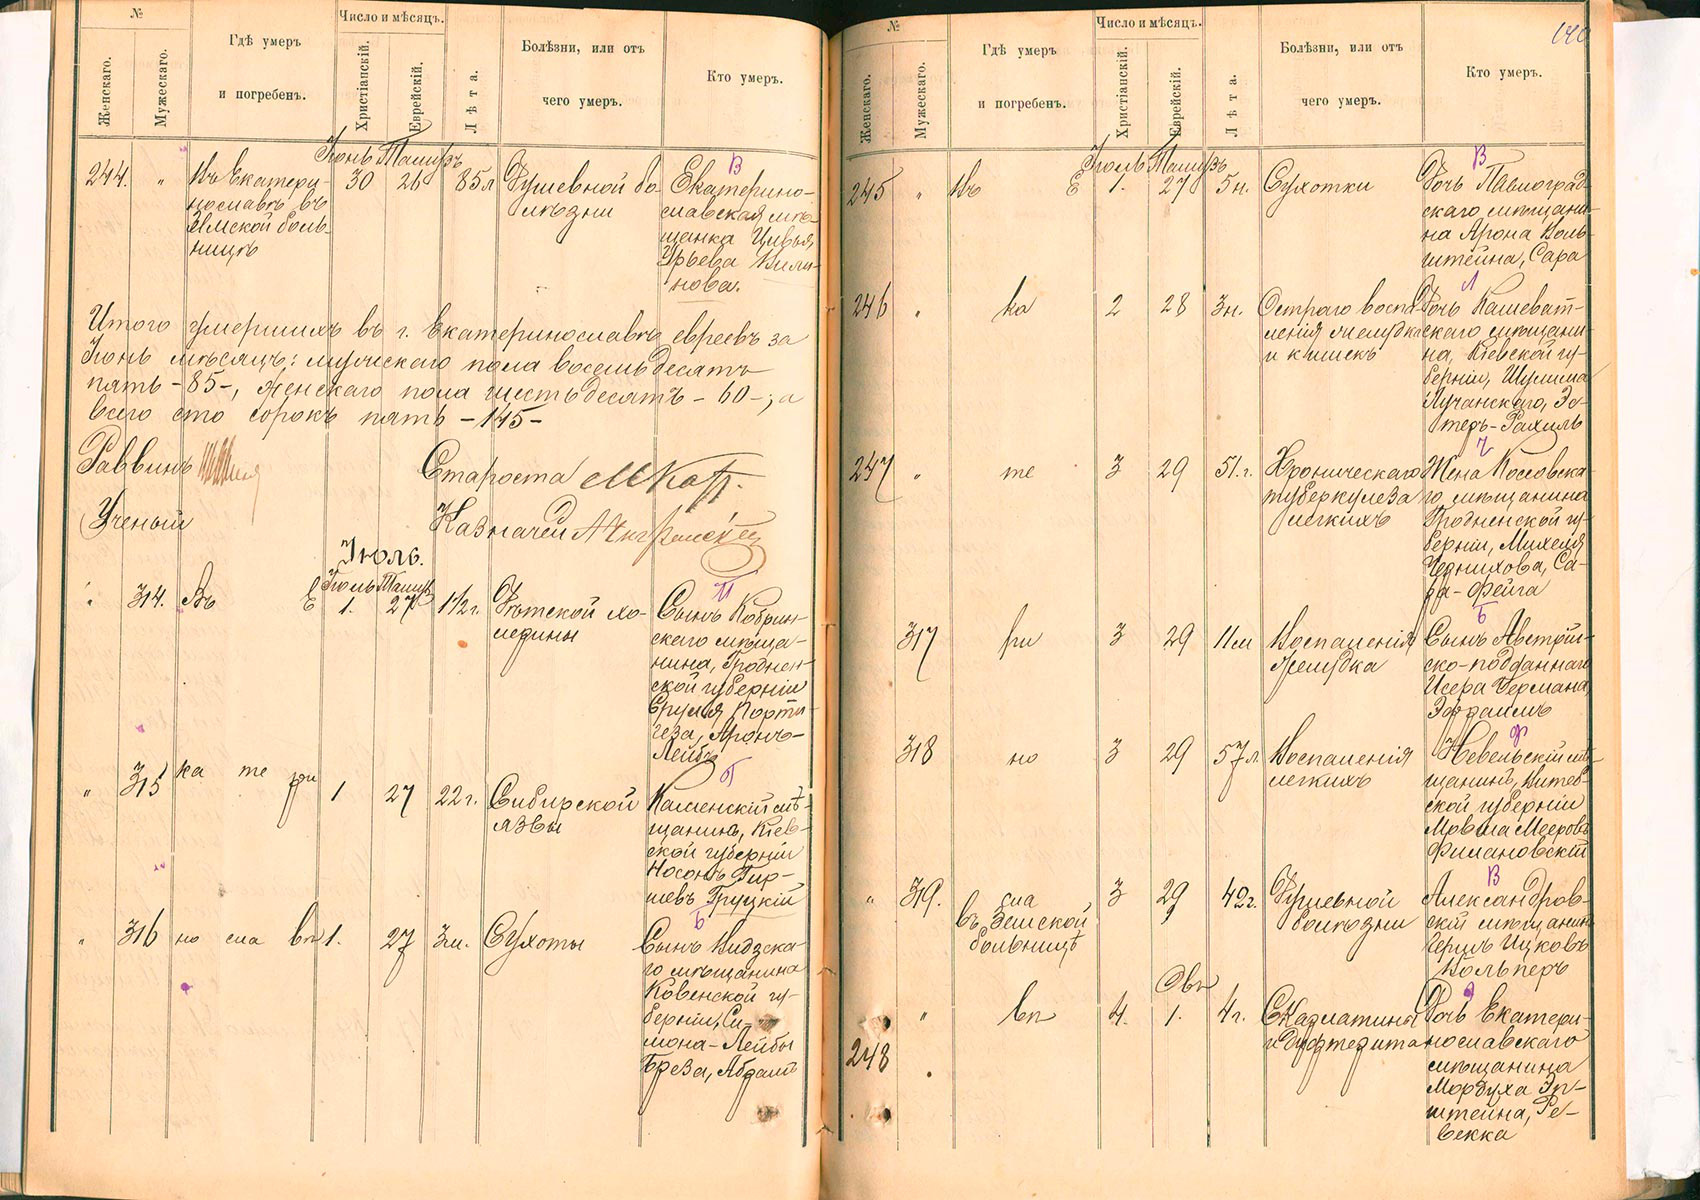 №
Число и мѣсяцъ.
Женскаго.
Мужескаго.
Гдѣ умеръ
и погребенъ.
Христіанскій.
Еврейскій.
Лѣта.
Болѣзни, или отъ
чего умеръ.
Кто умеръ.
Іюнь Тамузъ
244.
"
Въ Екатери-
нославѣ въ
Земской боль-
ницѣ
30
26
85 л
Душевной бо-
лѣзни
В
Екатерино-
славская мѣ-
щанка Цивья
Юрьева
нова.
Итого умершихъ въ г. Екатеринославѣ евреевъ за
Іюнь мѣсяцъ: мужескаго пола восемьдесятъ
пять - 85 -, женскаго пола шестьдесятъ - 60 -; а
всего сто сорокъ пять - 145 -
Раввинъ
Староста
Ученый
Казначей
Іюль.
Іюль Тамузъ
"
314.
Въ Е
1.
27
1 1/2 г.
Дѣтской хо-
лерины
П
Сынъ Кобрин-
скаго мѣща-
нина, Гроднен-
ской губерніи
Портu-
геза, Аронъ-
Лейбъ
"
315
ка те ри
1
27
22 г.
Сибирской
язвы
Г
Каменскій мѣ-
щанинъ, Кіев-
ской губерніи
Носонъ Гир-
шевъ Груцкій
"
316
но сла вѣ
1.
27
3 м.
Сухоты
Б
Сынъ Видзска-
го мѣщанина
Ковенской гу-
берніи, Си-
мона-Лейбы
Бреза, Абрамъ
140
№
Число и мѣсяцъ.
Женскаго.
Мужескаго.
Гдѣ умеръ
и погребенъ.
Христіанскій.
Еврейскій.
Лѣта.
Болѣзни, или отъ
чего умеръ.
Кто умеръ.
Іюль Тамузъ
245
"
Въ Е
1.
27
5 н.
Сухотки
В
Дочь Павлоград-
скаго мѣщани-
на Арона Воль-
штейна, Сара
246
"
ка
2
28
3 н.
Остраго воспа-
ленія желудка
и кишекъ
Л
Дочь Кашеват-
скаго мѣщани-
на, Кіевской гу-
берніи, Шулима
Лучанскаго, Эс-
теръ-Рахиль
247
"
те
3
29
51 г.
Хроническаго
туберкулеза
легкихъ
Ч
Жена Коссовска-
го мѣщанина
Гродненской гу-
берніи, Михеля
Чернихова, Са-
ра-Фейга
317
ри
3
29
11 м
Воспаленія
желудка
Б
Сынъ Австрій-
ско-подданнаго
Исера Бермана,
Эфраимъ
318
но
3
29
57 л.
Воспаленія
легкихъ
Ф
Невельскій мѣ-
щанинъ, Витеб-
ской губерніи
Мовша Мееровъ
Филановскій
"
319.
сла
въ Земской
больницѣ
3
29
42 г.
Душевной
болѣзни
В
Александров-
скій мѣщанинъ
Герцъ Ицковъ
Вольперъ
Овъ
248
"
вѣ
4.
1.
4 г.
Скарлатины
и дифтерита
Э
Дочь Екатери-
нославскаго
мѣщанина
Мордуха Эп-
штейна, Ре-
векка